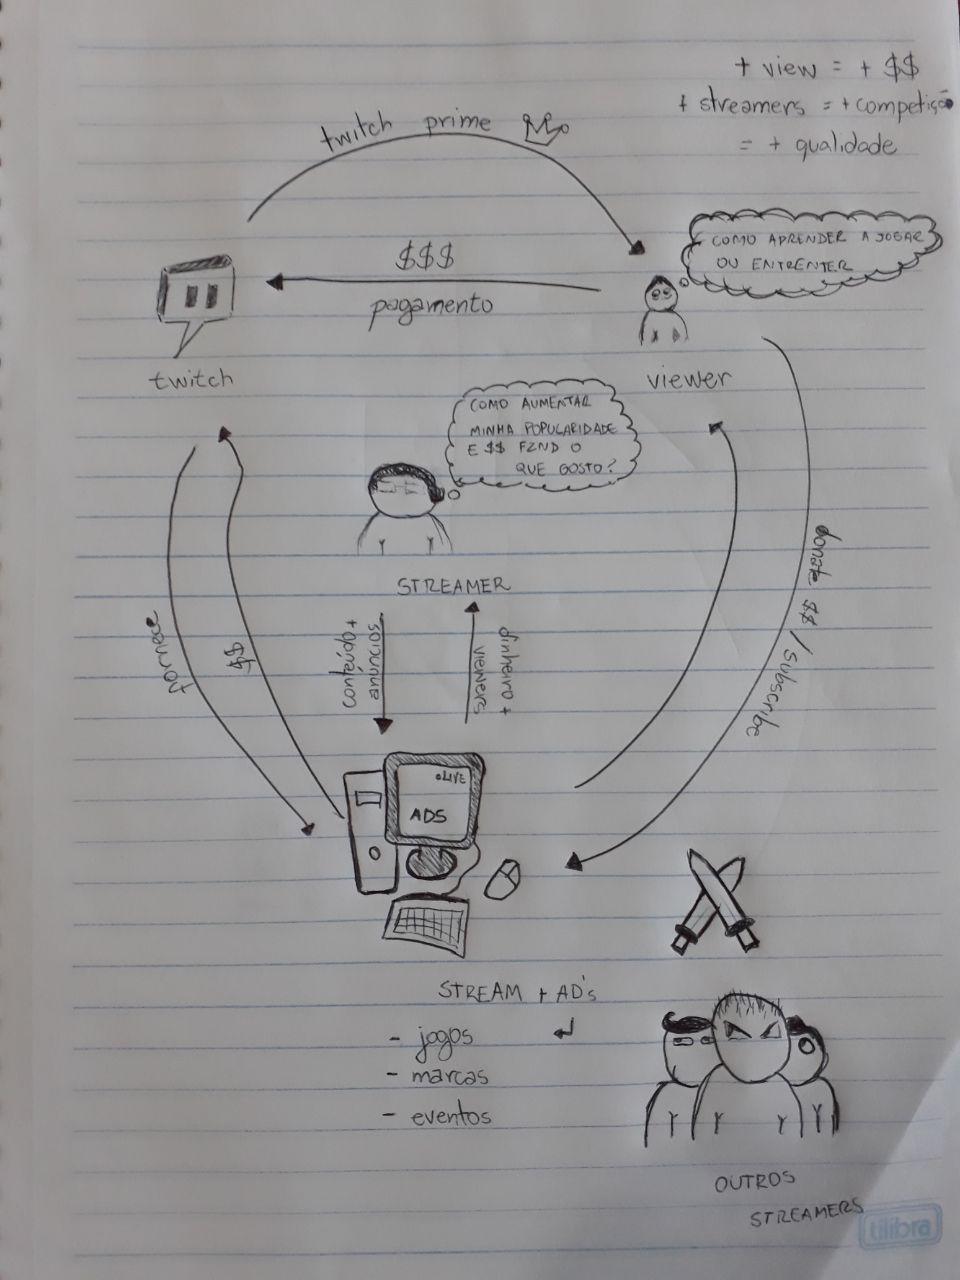 + view = + $$
+ streamers = + competição
= + qualidade
twitch prime
COMO APRENDER A JOGAR
OU ENTRENTER
$$$
pagamento
twitch
viewer
COMO AUMENTAR
MINHA POPULARIDADE
E $$ FZND O
QUE GOSTO?
STREAMER
fornece
$$
conteúdo +
anúncios
dinheiro +
viewers
donate $$ / subscribe
LIVE
ADS
STREAM + AD's
- jogos
- marcas
- eventos
OUTROS
STREAMERS
tilibra